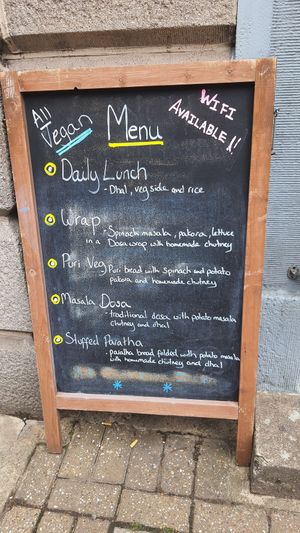 All
Vegan
Menu
WIFI
AVAILABLE!!
Daily Lunch
- Dhal, veg side and rice
Wrap
- Spinach masala, pakora, lettuce
in a Dosa wrap with homemade chutney
Puri Veg
- Puri bread with spinach and potato
pakora and homemade chutney
Masala Dosa
- traditional dosa with potato masala
chutney and dhal
Stuffed Paratha
- paratha bread folded with potato masala
with homemade chutney and dhal